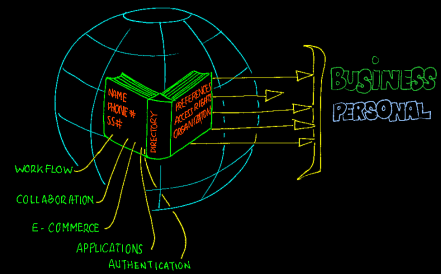 NAME
PHONE #
SS#
DIRECTORY
PREFERENCE
ACCESS RIGHTS
ORGANIZATION
BUSINESS
PERSONAL
WORKFLOW
COLLABORATION
E-COMMERCE
APPLICATIONS
AUTHENTICATION